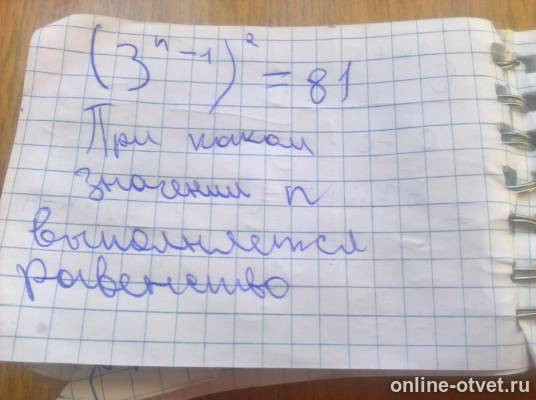 (3ⁿ⁻¹)² = 81
При каком
значении n
выполняется
равенство
online-otvet.ru